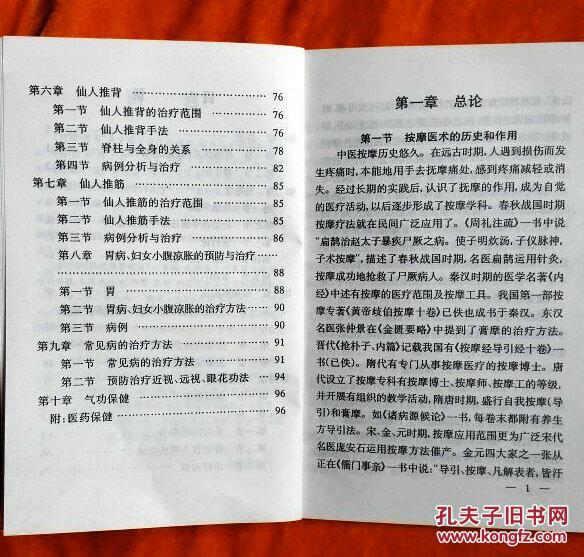 第六章 仙人推背 …………………… 76
第一节 仙人推背的治疗范围 ………… 76
第二节 仙人推背手法 ……………… 76
第三节 脊柱与全身的关系 ………… 78
第四节 病例分析与治疗 …………… 82
第七章 仙人推筋 …………………… 85
第一节 仙人推筋的治疗范围 ………… 85
第二节 仙人推筋手法 ……………… 85
第三节 病例分析与治疗 …………… 86
第八章 胃病、妇女小腹凉胀的预防与治疗 ……
…………………………………… 88
第一节 胃 ………………………… 88
第二节 胃病、妇女小腹凉胀的治疗方法 … 90
第三节 病例 ……………………… 90
第九章 常见病的治疗方法 …………… 91
第一节 常见病的治疗方法 ………… 91
第二节 预防治疗近视、远视、眼花功法 …… 94
第十章 气功保健 …………………… 96
附:医药保健 ……………………… 96
第一章 总论
第一节 按摩医术的历史和作用
中医按摩历史悠久。在远古时期,人遇到损伤而发
生疼痛时,本能地用手去抚摩痛处,感到疼痛减轻或消
失。经过长期的实践后,认识了抚摩的作用,成为自觉
的医疗活动,以后逐步形成了按摩学科。春秋战国时期
按摩疗法就在民间广泛应用了。《周礼注疏》一书中说
“扁鹊治赵太子暴疾尸厥之病。使子明炊汤,子仪脉神,
子术按摩”,描述了春秋战国时期,名医扁鹊运用针灸、
按摩成功地抢救了尸厥病人。秦汉时期的医学名著《内
经》中述有按摩的医疗范围及按摩工具。我国第一部按
摩专著《黄帝歧伯按摩十卷》已佚也成书于秦汉。东汉
名医张仲景在《金匮要略》中提到了膏摩的治疗方法。
晋代《抢朴子、内篇》记载我国有《按摩经导引经十卷》一
书(已佚)。隋代有专门从事按摩医疗的按摩博士。唐
代设立了按摩专科有按摩博士、按摩师、按摩工的等级,
并开展有组织的教学活动,隋唐时期,盛行自我按摩(导
引)和膏摩。如《诸病源候论》一书,每卷末都附有养生
方导引法。宋、金、元时期,按摩应用范围更为广泛宋代
名医庞安石运用按摩方法催产。金元四大家之一张从
正在《儒门事亲》一书中说:“导引、按摩、凡解表者,皆汗
— 1 —
孔夫子旧书网
www.kongfz.com